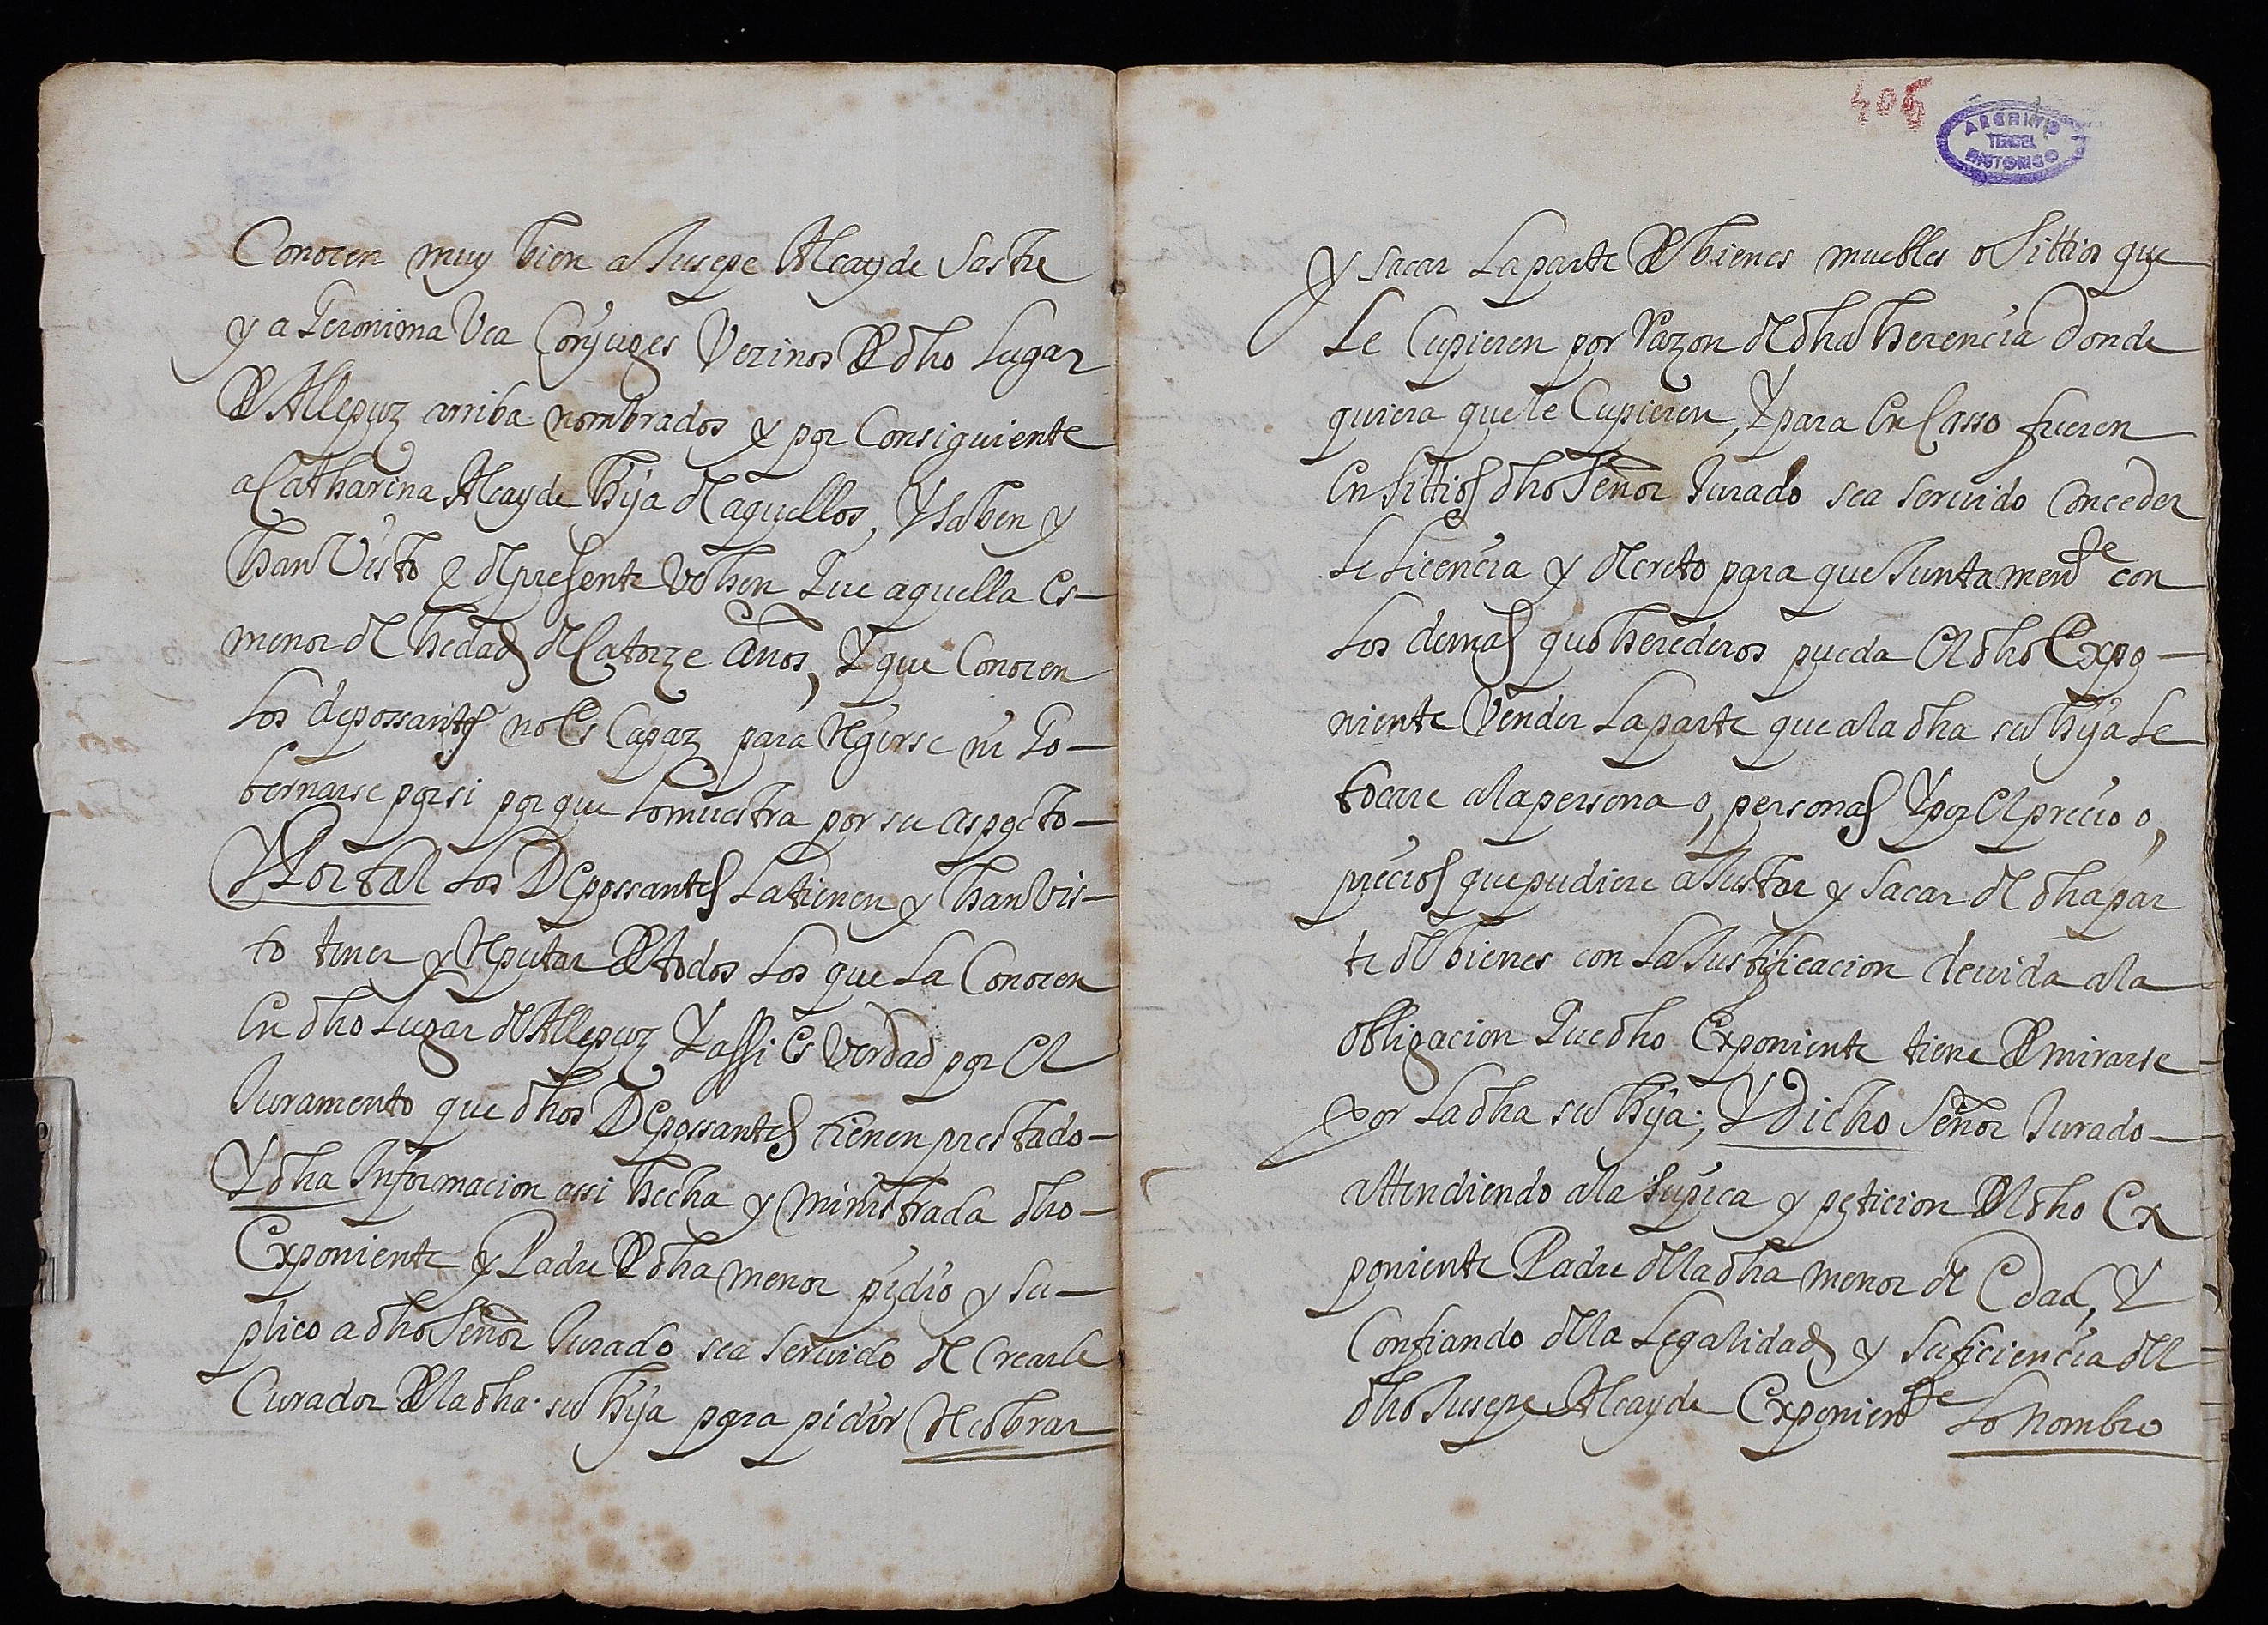 Conozen muy bien a Jusepe Alcayde Sastre
y a Geronima Vea Conyuges Vezinos de dho Lugar
de Allepuz arriba nombrados y por Consiguiente
a Catharina Alcayde hija de aquellos, Y saben y
han Visto e de presente vehen Que aquella es-
menor de hedad de Catorze años, Y que Conozen
los depossantes no es Capaz para regirse ni Go-
bernarse por si por que lo muestra por su aspecto-
Y Por tal los Depossantes la tienen y han vis-
to tener y reputar de todos los que la Conozen
en dho Lugar de Allepuz Y assi es verdad por el
Juramento que dhos Depossantes tienen prestado-
Y dha Informacion assi hecha y ministrada dho-
Exponiente y Padre de dha menor pidio y su-
plico a dho Señor Jurado sea servido de Crearle
Curador de la dha su hija para pidir Recobrar
406
ARCHIVO
TERUEL
HISTORICO
y sacar la parte de bienes muebles o sittios que
le Cupieren por Razon de dha herencia donde
quiera que le Cupieren, Y para en Casso fueren
en sittios dho Señor Jurado sea servido Conceder
le licencia y decreto para que Juntamente con
los demas quoherederos pueda el dho Expo-
niente Vender la parte que a la dha su hija le
tocare a la persona o, personas Y por el precio o,
precios que pudiere aJustar y sacar de dha par
te de bienes con la Justificacion devida a la
obligacion Que dho Exponiente tiene de mirarse
por la dha su hija; Y Dicho Señor Jurado-
attendiendo a la supica y peticion del dho Ex
poniente Padre de la dha menor de Edad, Y
Confiando de la Legalidad y suficiencia del
dho Jusepe Alcayde Exponiente lo nombro